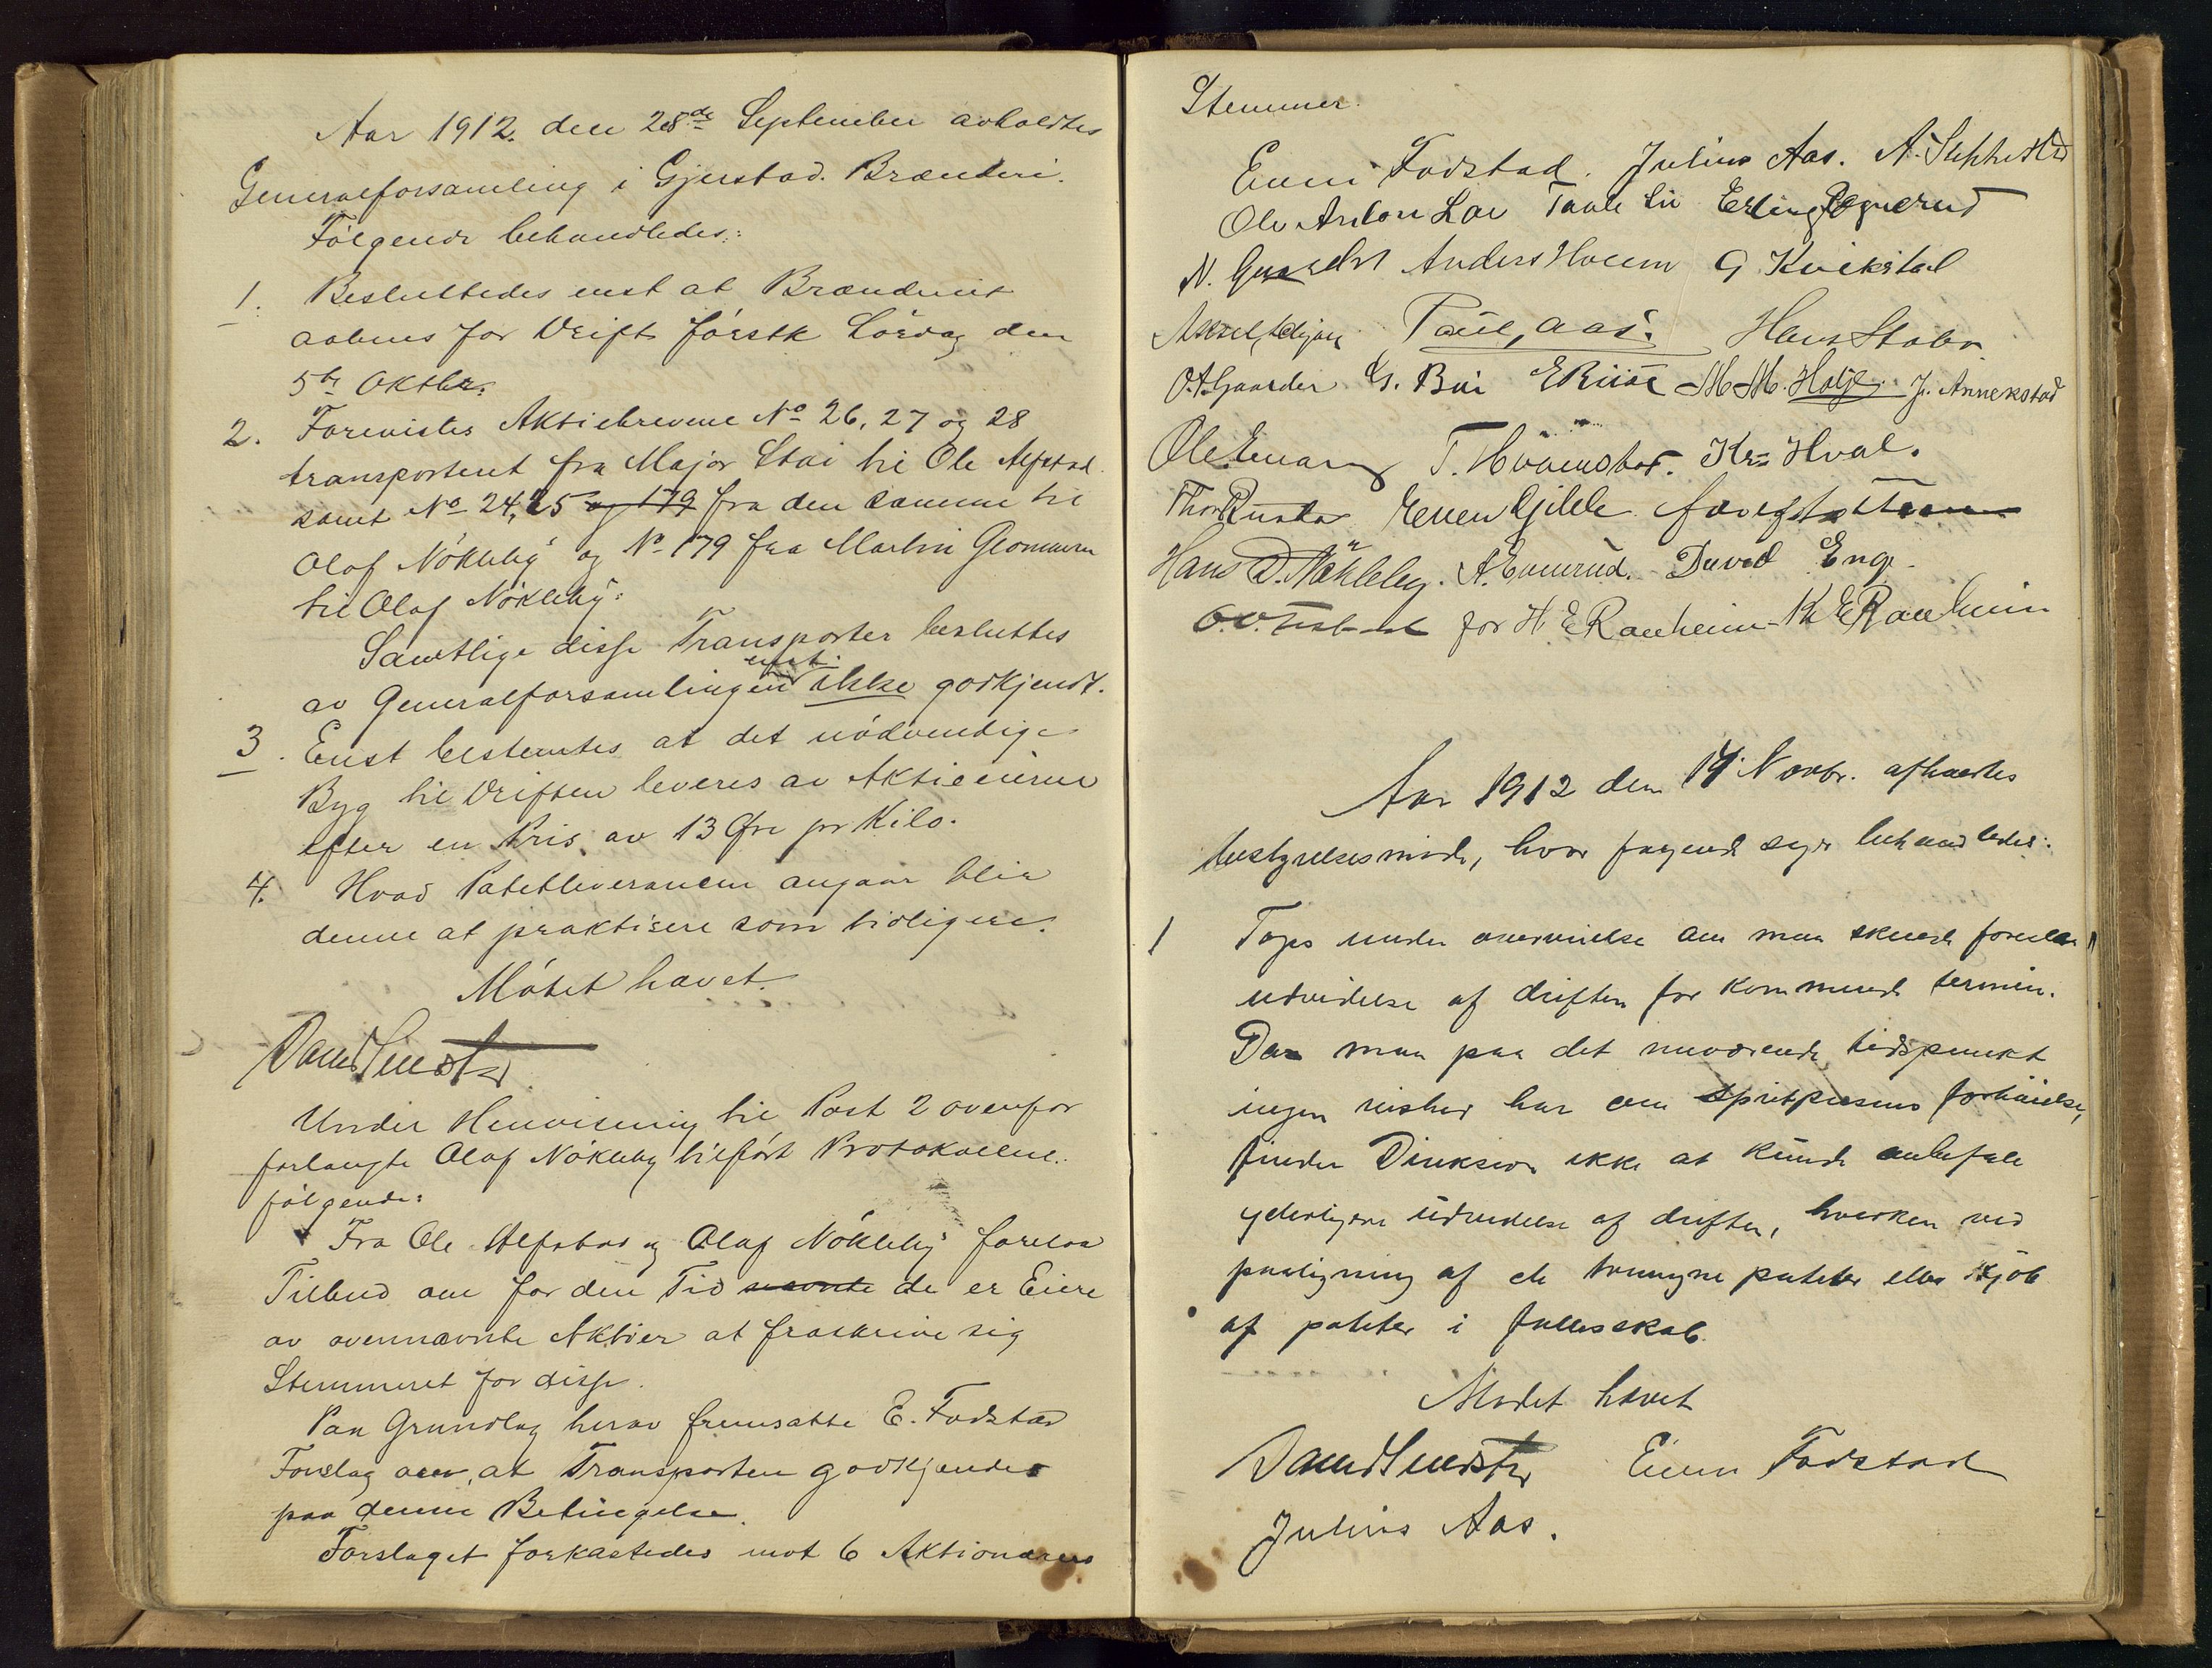 Aar 1912. den 28de September avholdtes
Generalforsamling i Gjerstad. Brænderi.
Følgende behandledes:
1. Besluttedes enst at Brænderiet
aabnes for Drift første Lördag den
5te Oktbr.
2. Forevistes Aktiebrevene No 26, 27 og 28
transporteret fra Major Stai til Ole Alfstad
samt No 24, 25 og 179 fra den samme til
Olaf Nökleby og No 179 fra Martin Glommen
til Olaf Nökleby:
Samtlige disse Transporter besluttes
enst.
av Generalforsamlingen ikke godkjendt.
3. Enst bestemtes at det nödvendige
Byg til Driften leveres av Aktieeierne
efter en Pris av 13 Øre pr Kilo.
4. Hvad Potetleverancen angaar blir
denne at praktisere som tidligere.
Mötet hævet.
Under Henvisning til Post 2 ovenfor
forlangte Olaf Nökleby tilfört Protokollen
fölgende:
Fra Ole Alfstad og Olaf Nökleby forelaa
Tilbud om for den Tid de er Eiere
av ovennævnte Aktier at fraskrive sig
Stemmeret for disse.
Paa Grundlag herav fremsatte E. Fodstad
Forslag om, at Transporten godkjendes
paa denne Betingelse.
Forslaget forkastedes mot 6 Aktionærers
Stemmer.
Even Fodstad. Julius Aas.
Ole Anton Lae Erling
N. Anders Hoem G. Kvikstad
Paul Aas. Hans Stabo
O. A. Gaarder G. Bui E Riise M. M. Holje J. Annekstad
Ole Kr. Hval.
Even Gjille
Hans D. Nökleby. A. Evenrud. David Eng.
for H. E Ranheim K E Ranheim
Aar 1912 den 14 Novbr. afholdtes
bestyrelsesmöde, hvor følgende sager behandledes:
1 Toges under overveielse om man skulde foreslaa
udvidelse af driften for kommende termin.
Da man paa det nuværende tidspunkt
ingen vished har om Spritprisens forhöielse,
finder Direksion ikke at kunde anbefale
yderligere udvidelse af driften, hverken ved
paaligning af de tvungne poteter eller kjöb
af poteter i fællesskab.
Mødet hævet
Even Fodstad
Julius Aas.